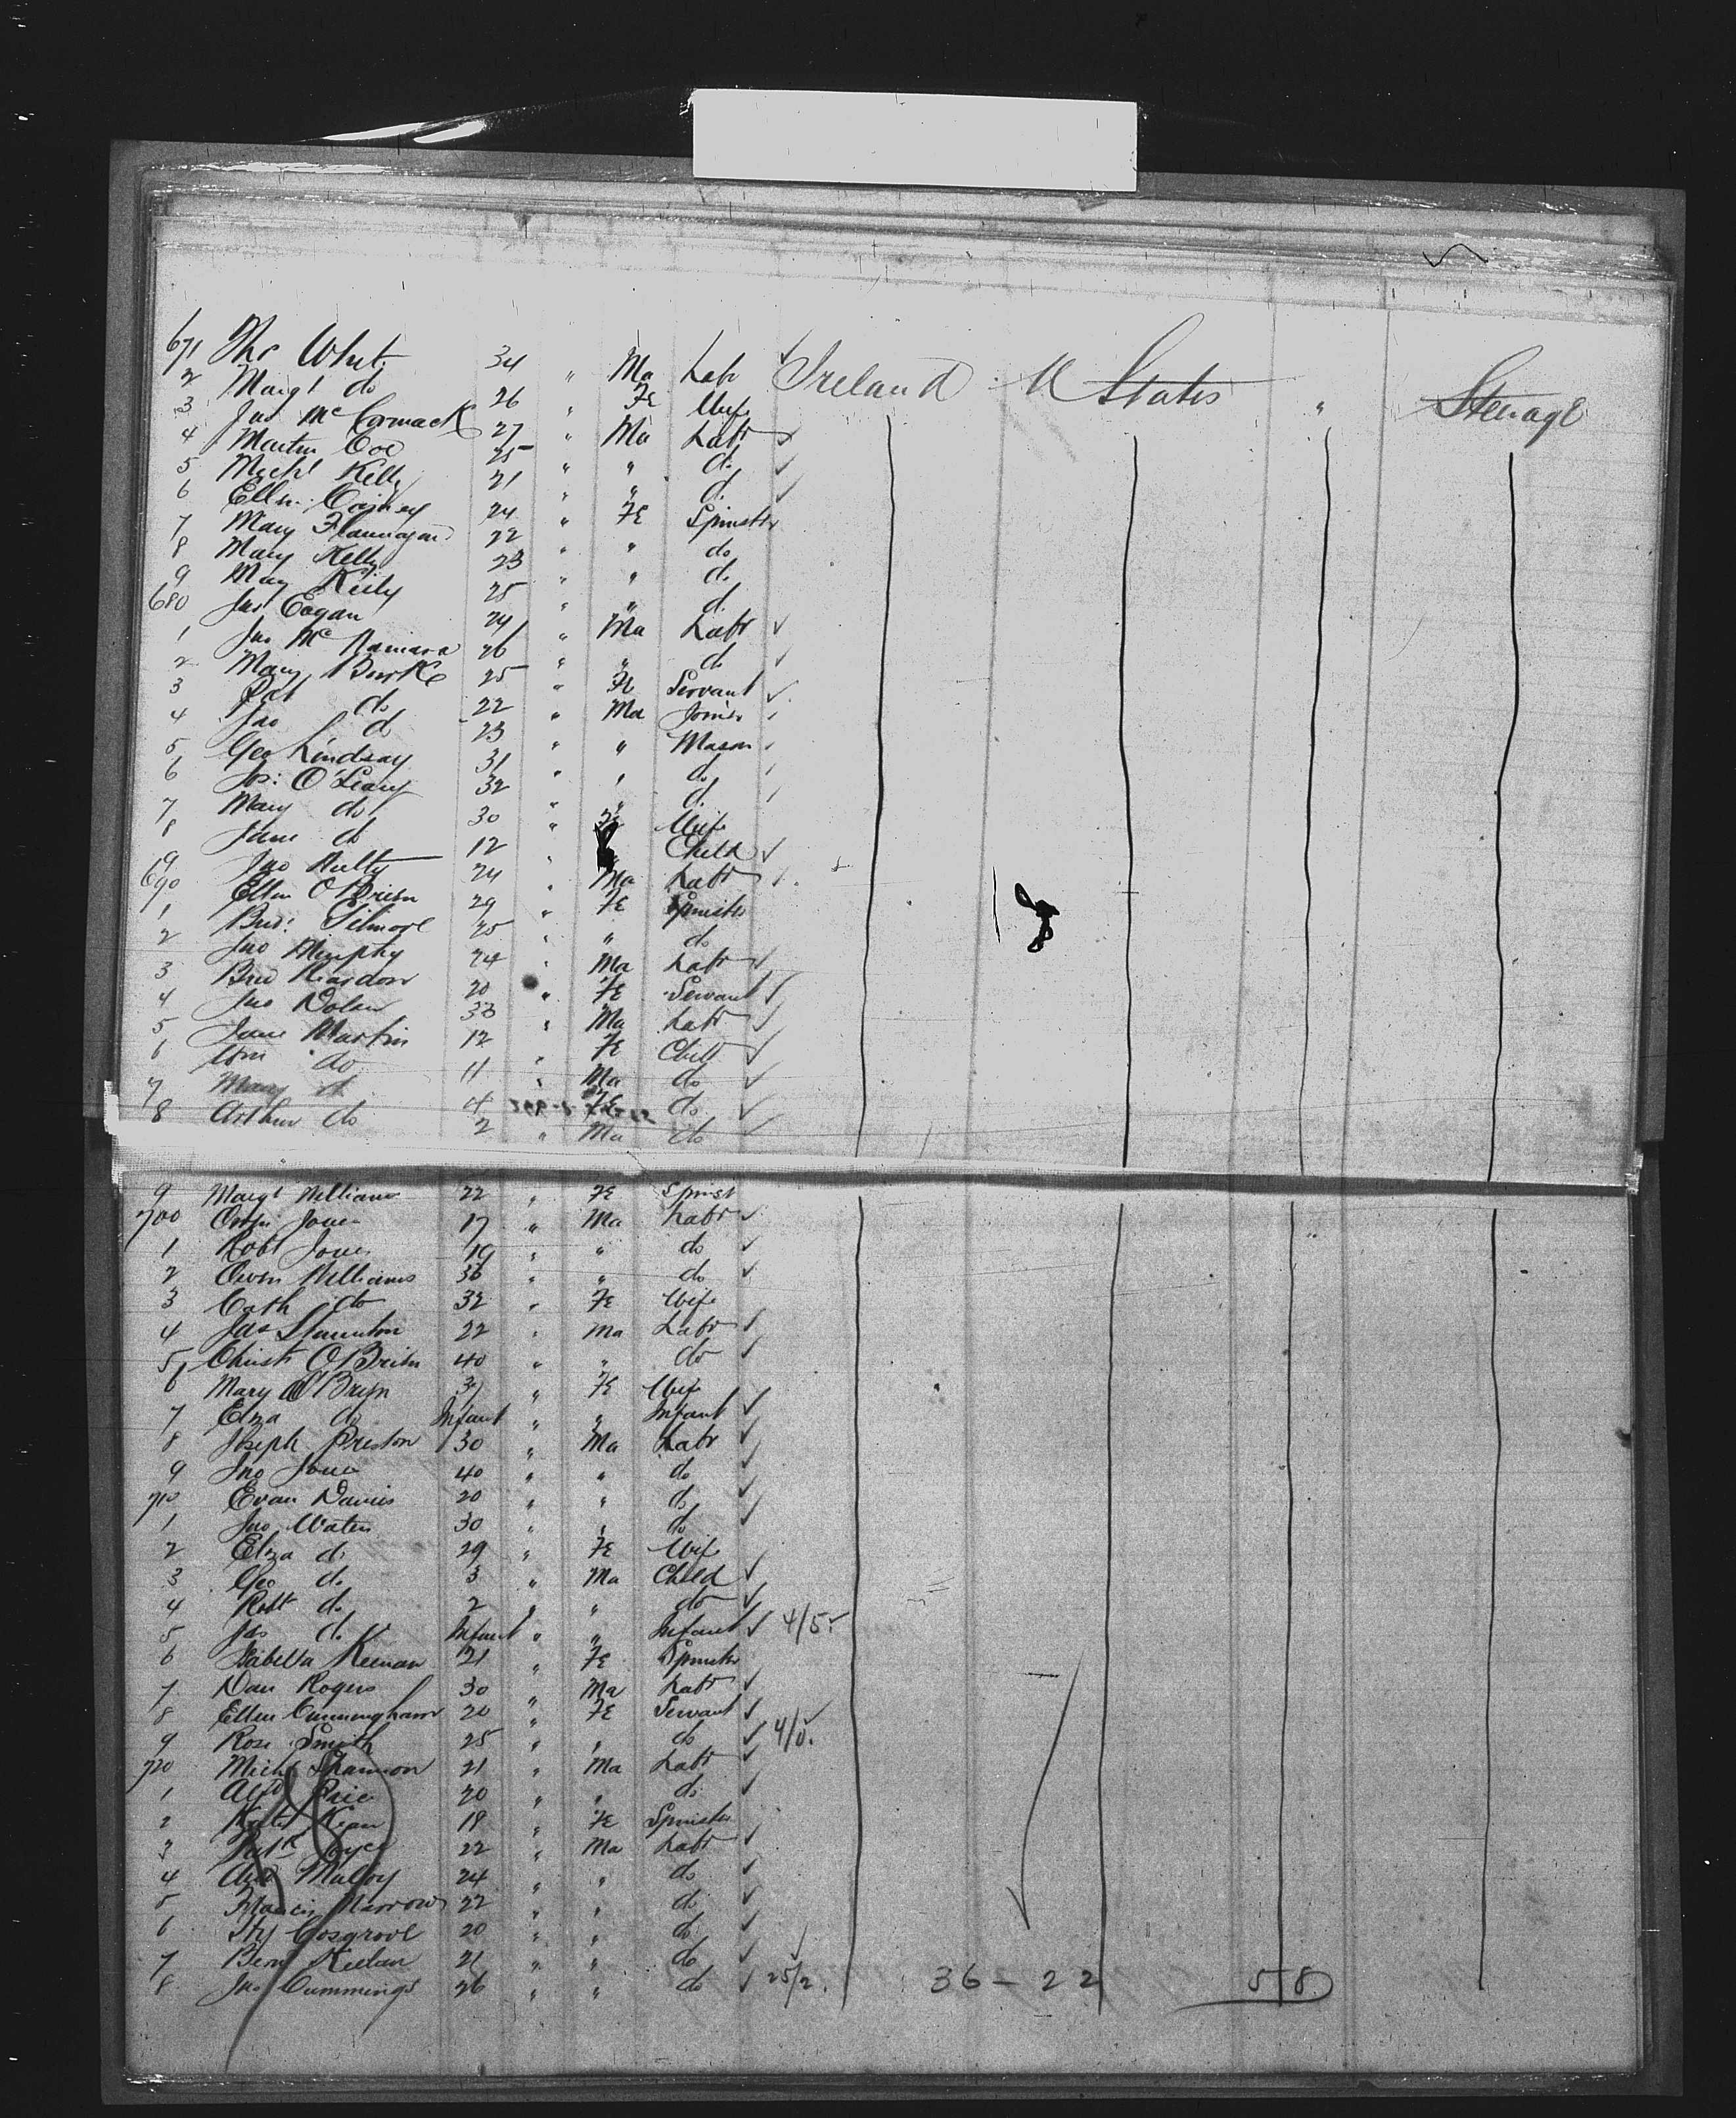 671 Ths White 34 " Ma Labr ✓ Ireland U States " Steerage
2 Margt do 26 " Fe Wife
3 Jno McCormack 27 " Ma Labr ✓
4 Martin Coe 25 " " do ✓
5 Michl Kelly 21 " " do ✓
6 Ellen 24 " Fe Spinster
7 Mary Flannagan 22 " " do
8 Mary Kelly 23 " " do
9 Mary Kiely 25 " " do
680 Jas Eagan 24 " Ma Labr ✓
1 Jno McNamara 26 " " do ✓
2 Mary Burke 25 " Fe Servant ✓
3 Pat do 22 " Ma Joiner
4 Jno do 23 " " Mason
5 Geo Lindsay 31 " " do
6 Jos: O'Leary 32 " " do
7 Mary do 30 " Fe Wife
8 Jane do 12 " " Child ✓
9 Jno Nulty 24 " Ma Labr ✓
690 Ellen O'Brien 29 " Fe Spinster
1 Brid: Gilmore 25 " " do
2 Jno Murphy 24 " Ma Labr ✓
3 Brid Reardon 20 " Fe Servant ✓
4 Jno Dolan 33 " Ma Labr ✓
5 Jane Martin 12 " Fe Child ✓
6 Wm do 11 " Ma do ✓
7 Mary do 4 Fe do ✓
8 Arthur do 2 " Ma do ✓
9 Margt Williams 22 " Fe Spinst
700 Owen Jones 17 " Ma Labr ✓
1 Robt Jones 19 " " do ✓
2 Owen Williams 36 " " do ✓
3 Cath do 32 " Fe Wife
4 Jas Staunton 22 " Ma Labr ✓
5 Christr O'Brien 40 " " do ✓
6 Mary O'Bryn " Fe Wife
7 Eliza do Infant " " Infant ✓
8 Joseph Preston 30 " Ma Labr ✓
9 Jno Jones 40 " " do ✓
710 Evan Davies 20 " " do ✓
1 Jno Waters 30 " " do ✓
2 Eliza do 29 " Fe Wife
3 Geo do 3 " Ma Child ✓
4 Robt do 2 " " do ✓
5 Jas do Infant " " Infant ✓ 4/5 ✓
6 Isabella Keenan 21 " Fe Spinster
7 Dan Rogers 30 " Ma Labr ✓
8 Ellen Cunningham 20 " Fe Servant ✓
9 Rose Smith 25 " " do ✓
720 Michl Shannon 21 " Ma Labr ✓
1 Alfd Price 20 " " do ✓
2 Kate Kean 19 " Fe Spinster
3 Patk Joyce 22 " Ma Labr ✓
4 Malloy 24 " " do ✓
5 Francis Marrow 22 " " do ✓
6 Hy Cosgrove 20 " " do ✓
7 Bern Keelan 21 " " do ✓
8 Jno Cummings 26 " " do ✓ 25/2. 36 – 22 58